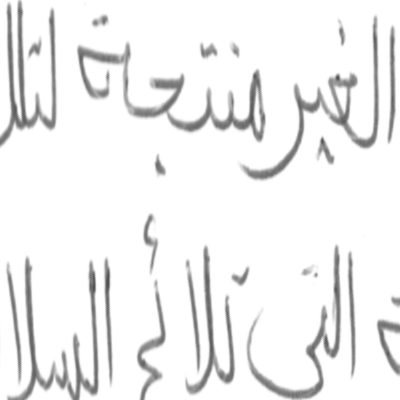 الغير منتجة لتلا
التى تلائم السلا